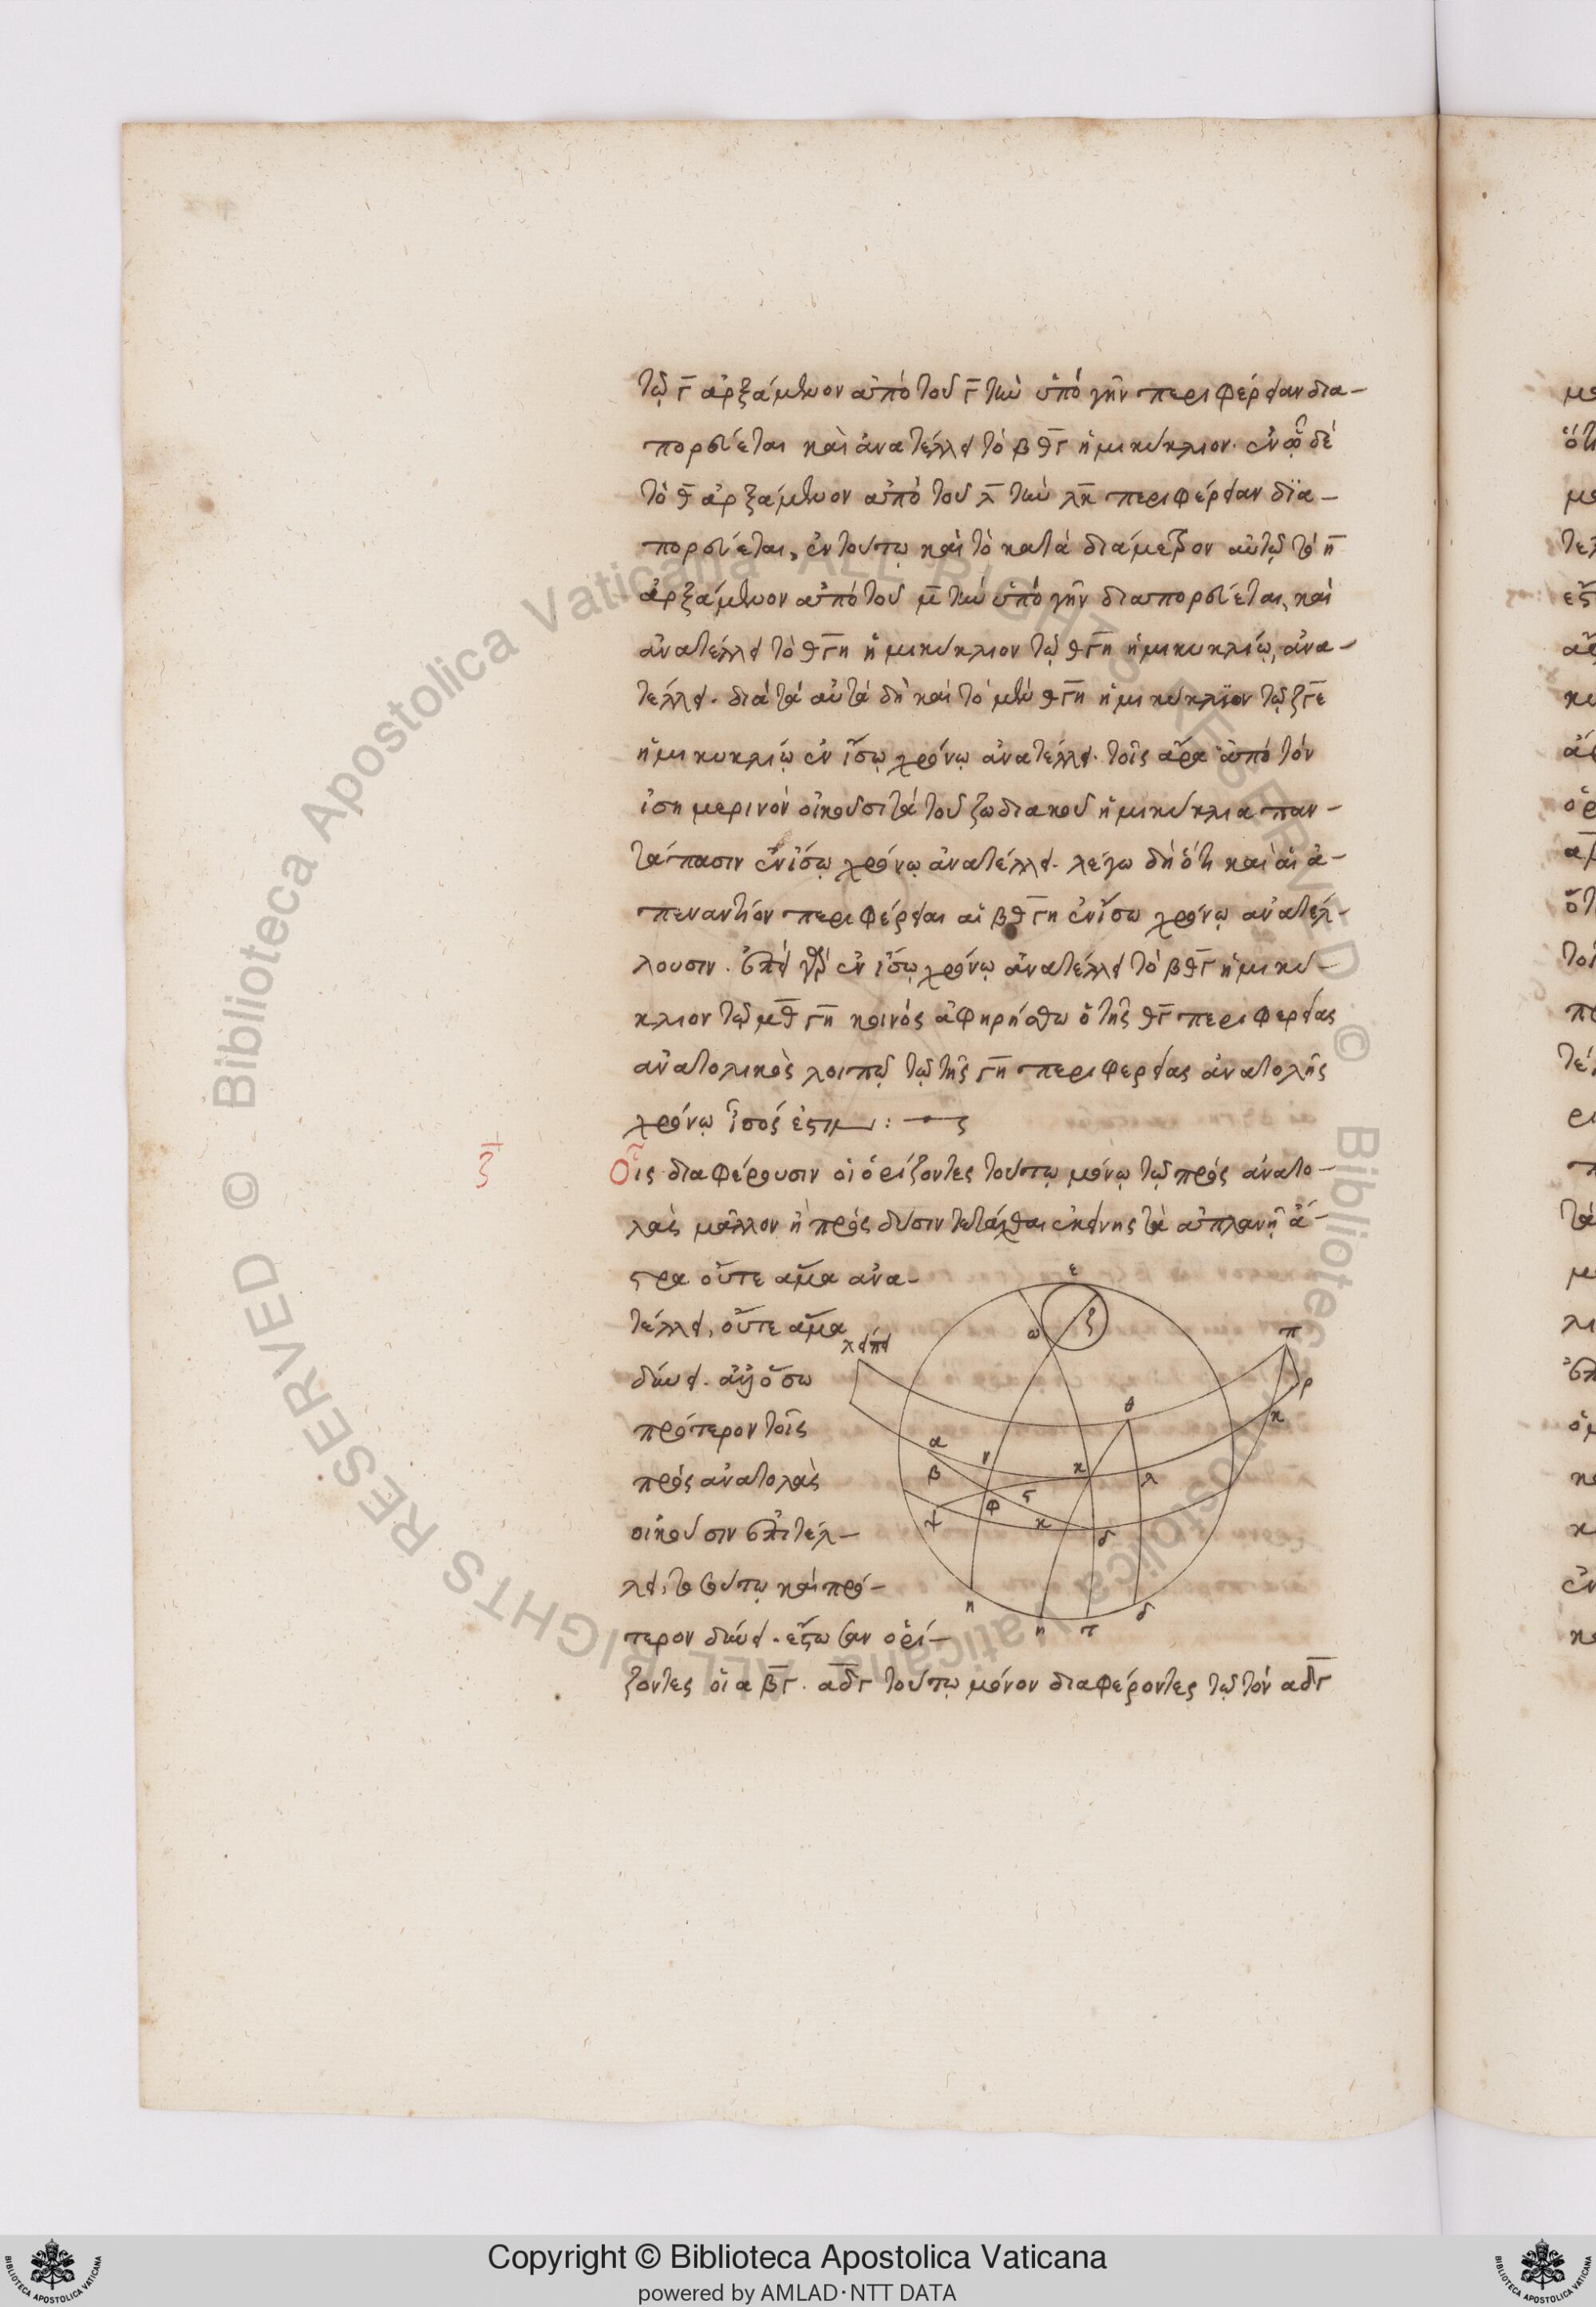 τῷ γ̅ ἀρξάμενον ἀπὸ τοῦ γ̅ τὴν ὑπὸ γῆν περιφέρειαν δια-
πορεύεται καὶ ἀνατέλλει τὸ β̅θ̅γ̅ ἡμικύκλιον. ἐν ᾧ δὲ
τὸ θ̅ ἀρξάμενον ἀπὸ τοῦ λ̅ τὴν λ̅κ̅ περιφέρειαν δϊα-
πορεύεται, ἐν τούτῳ καὶ τὸ κατὰ διάμετρον αὐτῷ τὸ η̅
ἀρξάμενον ἀπὸ τοῦ μ̅ τὴν ὑπὸ γῆν διαπορεύεται, καὶ
ἀνατέλλει τὸ θ̅γ̅η̅ ἡμικύκλιον τῷ θ̅γ̅η̅ ἡμικυκλίῳ, ἀνα-
τέλλει. διὰ τὰ αὐτὰ δὴ καὶ τὸ μὲν θ̅γ̅η̅ ἡμικύκλϊον τῷ ζ̅γ̅ε̅
ἡμικυκλίῳ ἐν ἴσῳ χρόνῳ ἀνατέλλει. τοῖς ἄρα ἀπὸ τὸν
ἰσημερινὸν οἰκοῦσι τὰ τοῦ ζωδιακοῦ ἡμικύκλια παν-
τάπασιν ἐν ἴσῳ χρόνῳ ἀνατέλλει. λέγω δὴ ὅτι καὶ αἱ ἀ-
πεναντίον περιφέρειαι αἱ β̅θ̅ γ̅η̅ ἐν ἴσῳ χρόνῳ ἀνατέλ-
λουσιν. ἐπεὶ γὰρ ἐν ἴσῳ χρόνῳ ἀνατέλλει τὸ β̅θ̅γ̅ ἡμικύ-
κλιον τῷ μ̅θ̅ γ̅η̅ κοινὸς ἀφηρήσθω ὁ τῆς θ̅γ̅ περιφερείας
ἀνατολικὸς λοιπῷ τῷ τῆς γ̅η̅ περιφερείας ἀνατολῆς
χρόνῳ ἴσός ἐστιν :
ζ̅
Οἷς διαφέρουσιν οἱ ὁρίζοντες τούτῳ μόνῳ τῷ πρὸς ἀνατο-
λὰς μᾶλλον ἢ πρὸς δύσιν τετάχθαι ἐκείνης τὰ ἀπλανῆ ἄ-
στρα οὔτε ἅμα ἀνα-
τέλλει, οὔτε ἅμα
λείπει
δύνει. ἀλλ' ὅσω
πρότερον τοῖς
πρὸς ἀνατολὰς
οἰκοῦσιν ἐπιτέλ-
λει, τοσούτῳ καὶ πρό-
τερον δύνει. ἔστωσαν ὁρί-
ζοντες οἱ α̅β̅γ̅. α̅δ̅γ̅ τούτῳ μόνον διαφέροντες τῷ τὸν α̅δ̅γ̅
Copyright © Biblioteca Apostolica Vaticana
powered by AMLAD·NTT DATA